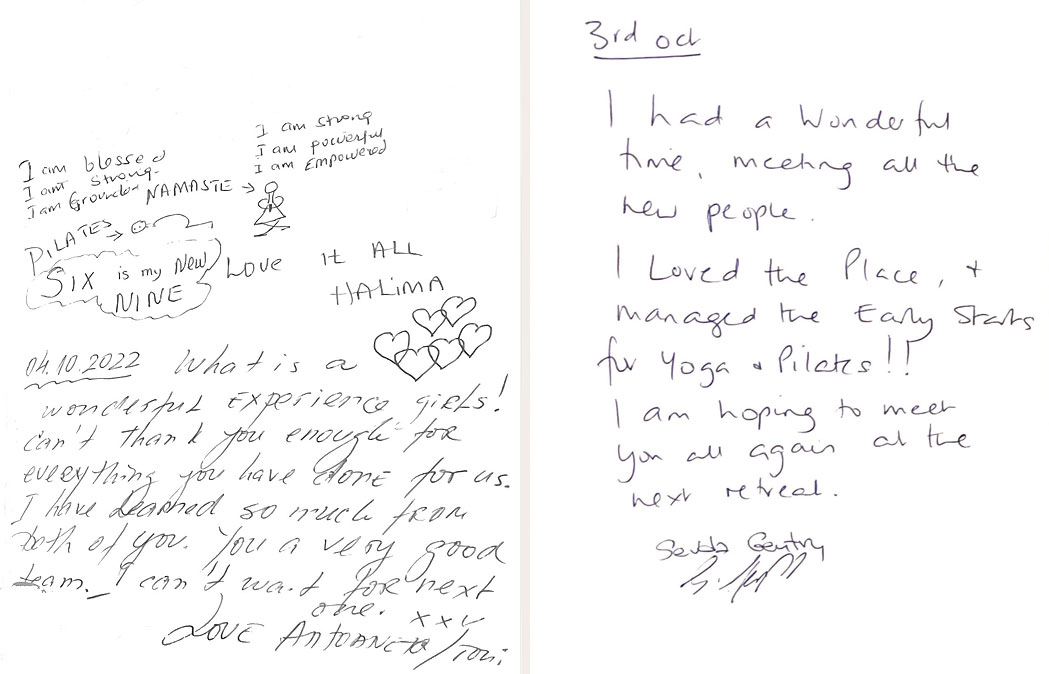 I am strong
I am powerful
I am Empowered
I am blessed
I am strong.
I am Grounded
NAMASTE →
PILATES →
SIX is my New
NINE
LOVE IT ALL
HALIMA
04.10.2022 What is a
wonderful experience girls!
can't thank you enough for
everything you have done for us.
I have learned so much from
both of you. You a very good
team. I can't wait for next
one. xxx
LOVE ANTOANETA/Toni
3rd oct
I had a wonderful
time, meeting all the
new people.
I Loved the Place, +
managed the Early Starts
for Yoga & Pilates!!
I am hoping to meet
you all again at the
next retreat.
Gentry